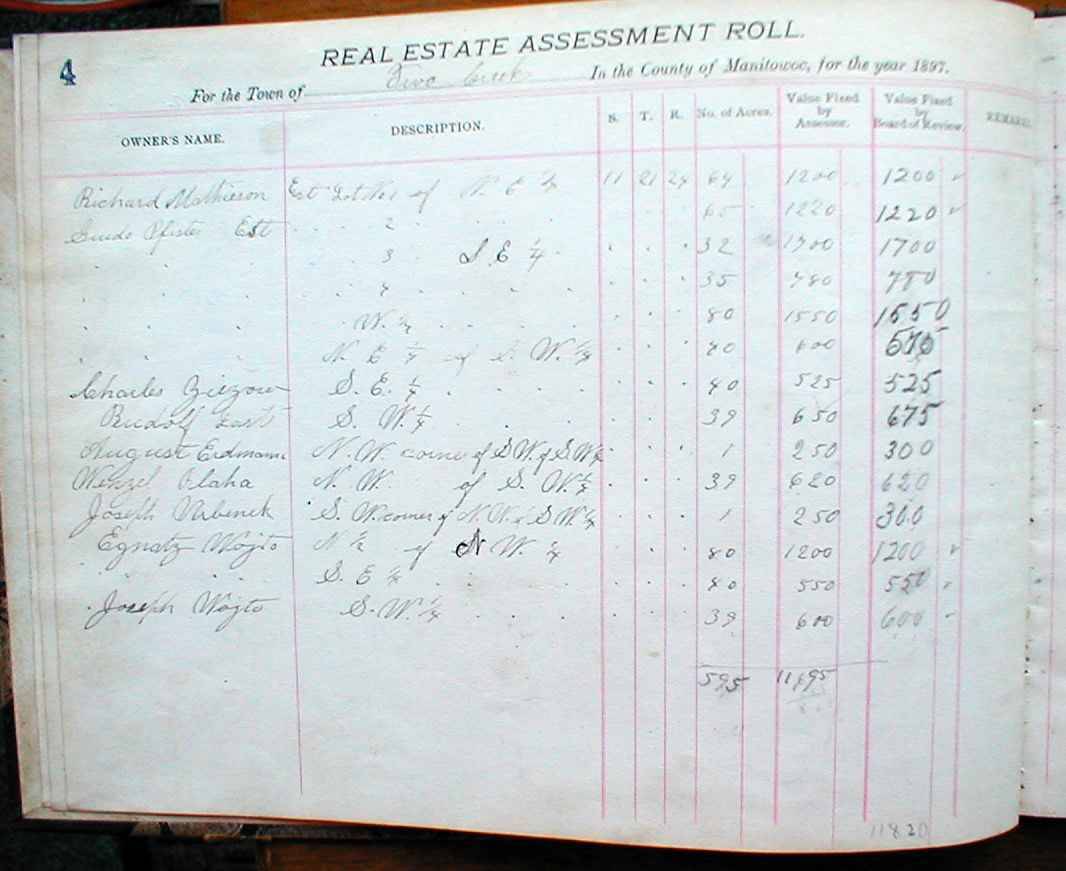 4
REAL ESTATE ASSESSMENT ROLL.
For the Town of Two Creek In the County of Manitowoc, for the year 1897.
OWNER'S NAME. DESCRIPTION. S. T. R. No. of Acres. Value Fixed by Assessor. Value Fixed by Board of Review. REMARKS.
Richard Mathieson Est Lot No 1 of N. E 1/4 11 21 24 64 1200 1200 ✓
Guido Pfister Est . . . . 2 . . . . . . 65 1220 1220 ✓
. . . . . 3 S. E 1/4 . . . . 32 1700 1700
. . . . . 4 . . . . . . . 35 780 780
. . . W. 1/2 . . . . . . . 80 1550 1550
. . . N. E 1/4 of S. W. 1/4 . . . 40 600
Charles S. E. 1/4 . . . . . . . 40 525 525
Rudolf S. W. 1/4 . . . . . . 39 650 675
August Erdmann N. W. corner of S W. of S. W 1/4 . . . 1 250 300
Wenzel Blaha N. W. of S. W. 1/4 . . . 39 620 620
Joseph Urbenek S. W. corner of N. W. of S W. 1/4 . . . 1 250 300
Egnatz Wojta N 1/2 of N W. 1/4 . . . 80 1200 1200 ✓
. . . S. E 1/4 . . . . . . . 40 550 550 ✓
Joseph Wojta S. W. 1/4 . . . . . . 39 600 600 ✓
595 11695
11820